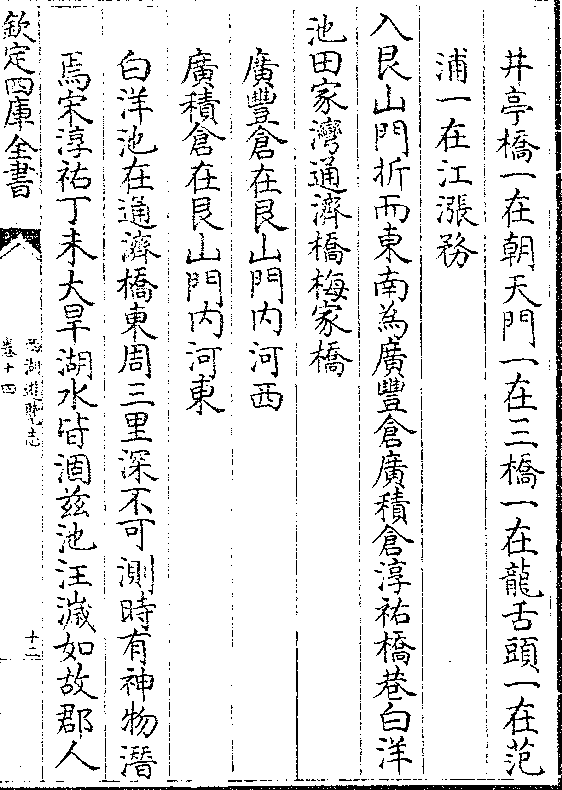 井亭橋一在朝天門一在三橋一在龍舌頭一在范
浦一在江漲務
入艮山門折而東南為廣豐倉廣積倉淳祐橋巷白洋
池田家灣通濟橋梅家橋
廣豐倉在艮山門内河西
廣積倉在艮山門内河東
白洋池在通濟橋東周三里深不可測時有神物潛
焉宋淳祐丁未大旱湖水皆涸茲池汪濊如故郡人
欽定四庫全書
西湖遊覽志
卷十四
十二